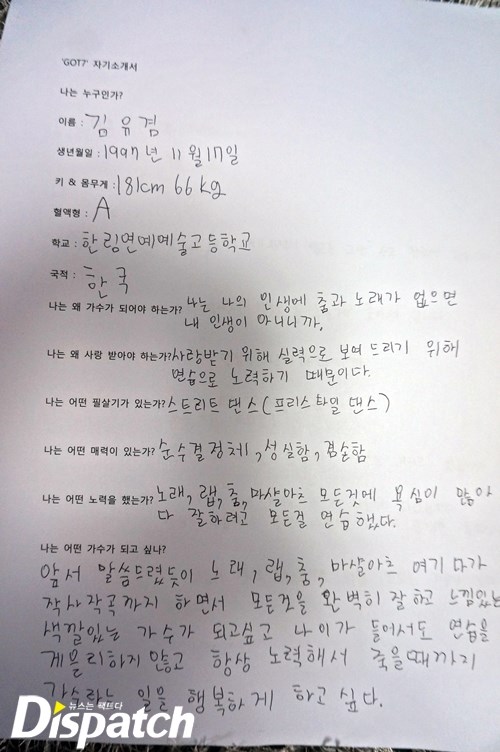 'GOT7' 자기소개서
나는 누구인가?
이름 : 김유겸
생년월일 : 1997년 11월 17일
키 & 몸무게 : 181cm 66kg
혈액형 : A
학교 : 한림연예예술고등학교
국적 : 한국
나는 왜 가수가 되어야 하는가? 나는 나의 인생에 춤과 노래가 없으면
내 인생이 아니니까,
나는 왜 사랑 받아야 하는가? 사랑받기 위해 실력으로 보여 드리기 위해
연습으로 노력하기 때문이다.
나는 어떤 필살기가 있는가? 스트리트 댄스(프리스타일 댄스)
나는 어떤 매력이 있는가? 순수결정체, 성실함, 겸손함
나는 어떤 노력을 했는가? 노래, 랩, 춤, 마샬아츠 모든것에 욕심이 많아
다 잘하려고 모든걸 연습했다.
나는 어떤 가수가 되고 싶나?
앞서 말씀드렸듯이 노래, 랩, 춤, 마샬아츠 여기다가
작사작곡까지 하면서 모든것을 완벽히 잘하고 느낌있는
색깔있는 가수가 되고싶고 나이가 들어서도 연습을
게을리하지 않고 항상 노력해서 죽을때까지
가수라는 일을 행복하게 하고 싶다.
뉴스는 팩트다
Dispatch